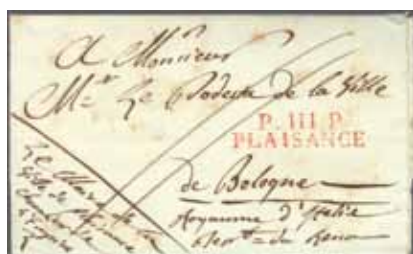 A Monsieur
Mr Le Podesta de la Ville
P. III P.
PLAISANCE
de Bologne
Royaume d'Italie
Dept du Reno
Le Maire de la
Ville de Plaisance